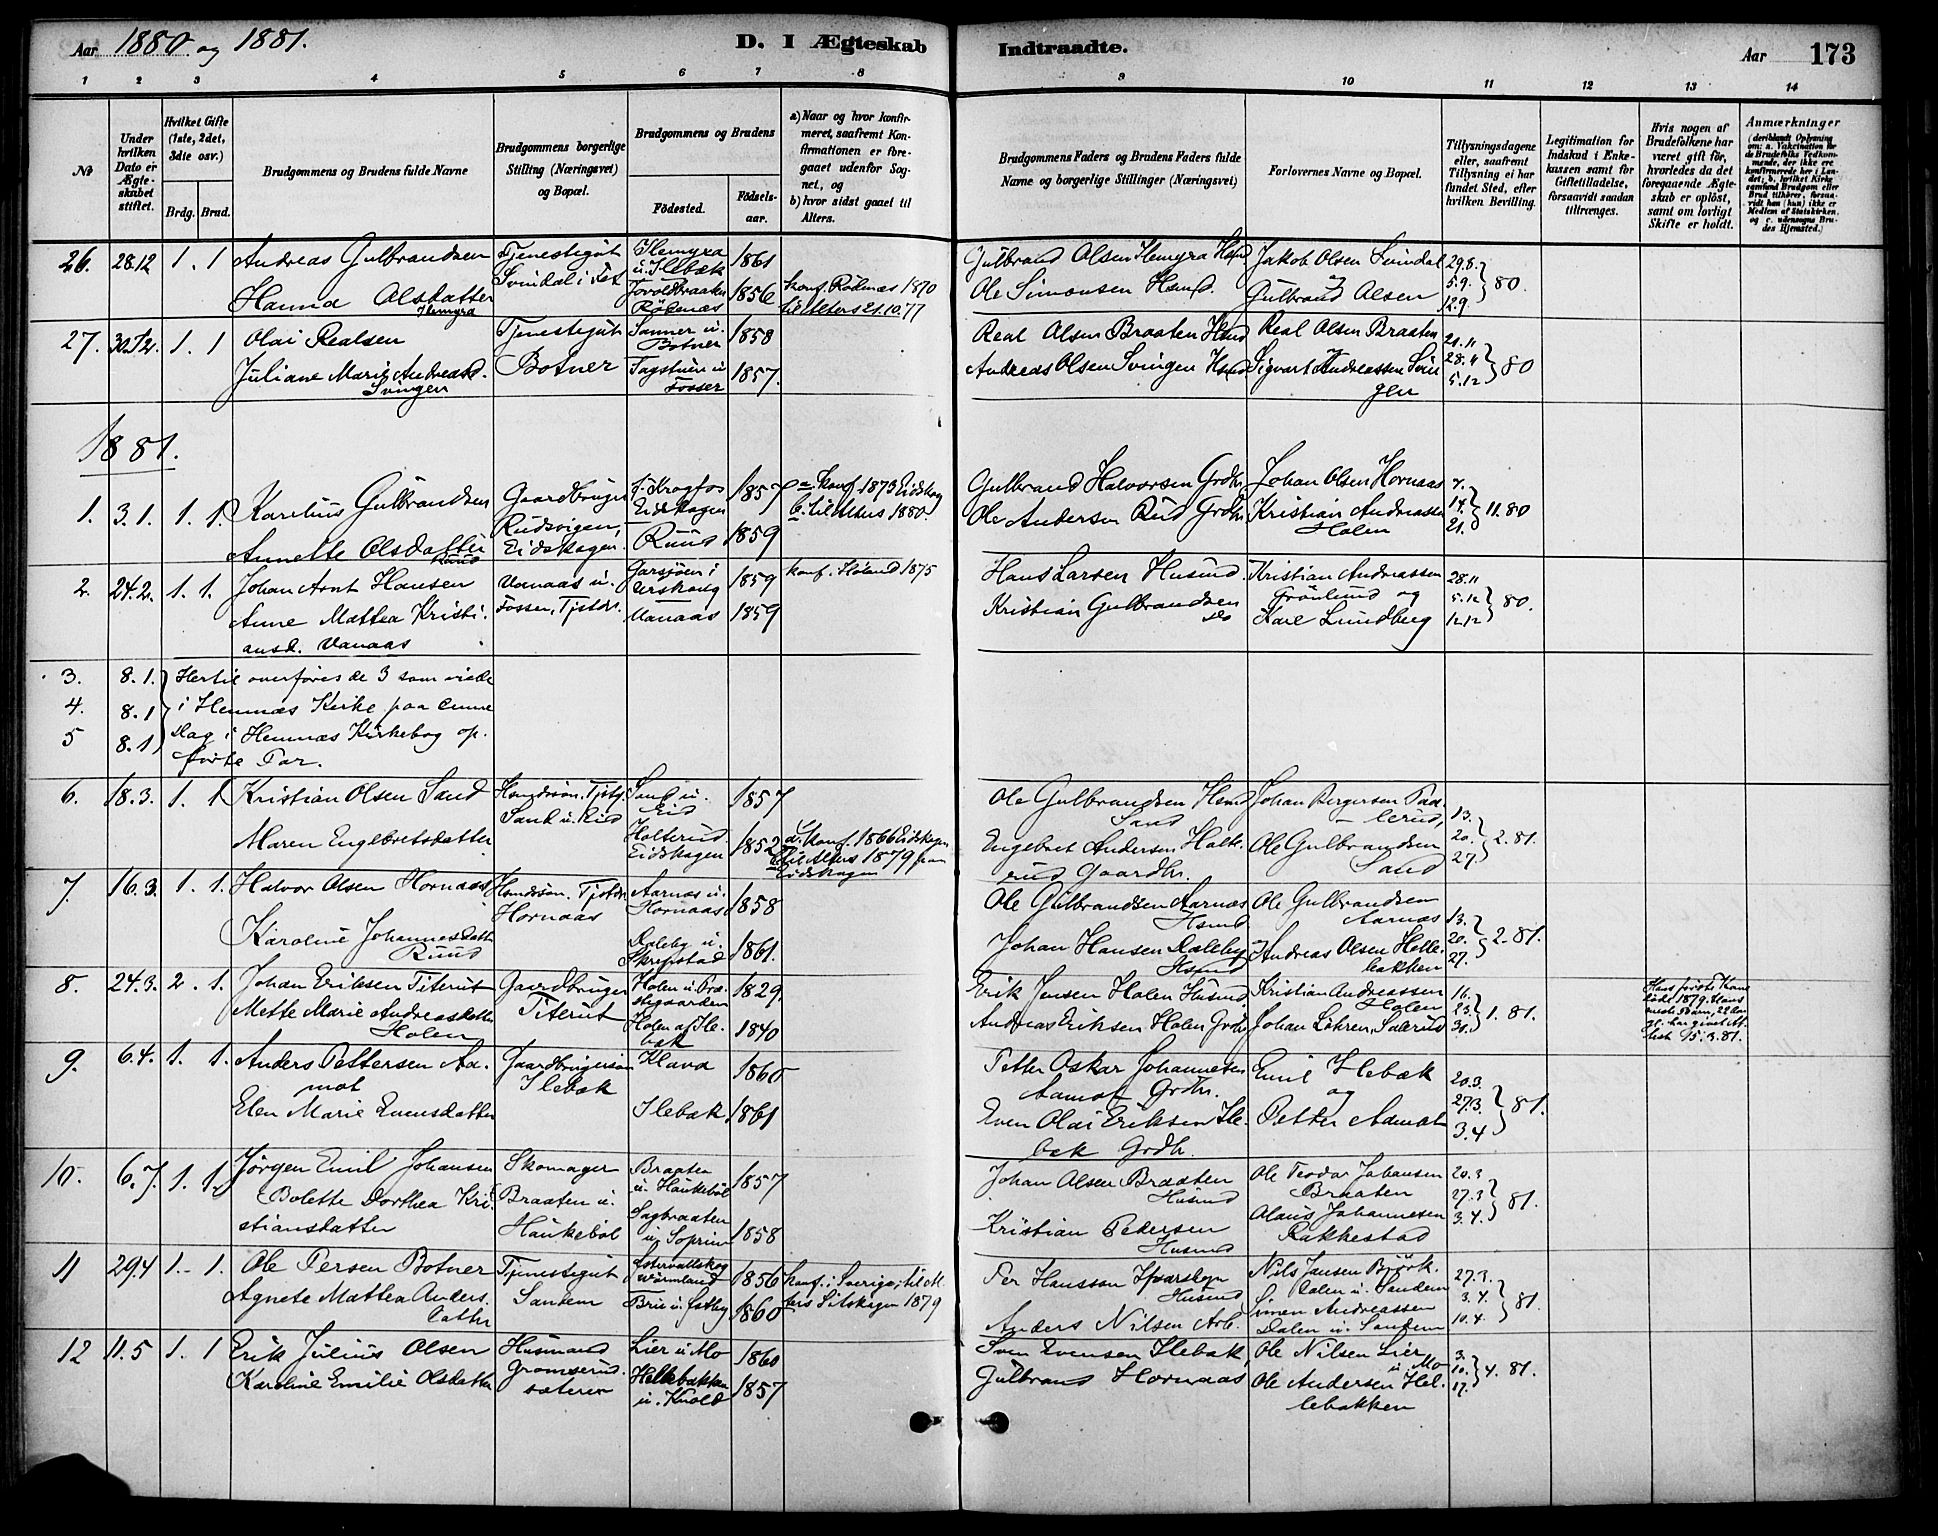 Aar 1880 og 1881.
D. I Ægteskab Indtraadte.
Aar 173
1 2 3 4 5 6 7 8 9 10 11 12 13 14
No
Under hvilken Dato er Ægteskabet stiftet.
Hvilket Gifte (1ste, 2det, 3die osv.)
Brdg. Brud.
Brudgommens og Brudens fulde Navne
Brudgommens borgerlige Stilling (Næringsvei) og Bopæl.
Brudgommens og Brudens
Fødested.
Fødselsaar.
a) Naar og hvor konfirmeret, saafremt Konfirmationen er foregaaet udenfor Sognet, og
b) hvor sidst gaaet til Alters.
Brudgommens Faders og Brudens Faders fulde Navne og borgerlige Stillinger (Næringsvei)
Forlovernes Navne og Bopæl.
Tillysningsdagene eller, saafremt Tillysning ei har fundet Sted, efter hvilken Bevilling.
Legitimation for Indskud i Enkekassen samt for Giftetilladelse, forsaavidt saadan tiltrænges.
Hvis nogen af Brudefolkene har været gift før, hvorledes da det foregaaende Ægteskab er opløst, samt om lovligt Skifte er holdt.
Anmærkninger
26. 28.12 1. 1 Andreas Gulbrandsen
Hanna Olsdatter Ilemyra
Tjenestegut Svindal i Tet
Ilemyra u. Ilebæk 1861
Rødenæs 1856
konf. Rødenæs 1870
til Alters 21.10.77
Gulbrand Olsen Ilemyra Hsmd
Ole Simonsen Hsmd.
Jakob Olsen Svindal
Gulbrand Olsen
29.8. 5.9. 12.9. 80.
27. 30.12. 1. 1 Olai Realsen
Juliane Marie Andreasd. Svingen
Tjenestegut Botner
Sanner u. Botner 1858
Fagstuen u. Fosser 1857.
Real Olsen Braaten Hsmd
Andreas Olsen Svingen Hsmd
Real Olsen Braaten
Sigvart Andreassen Svingen
21.11 28.11 5.12 80
1881.
1. 3.1. 1. 1. Karelius Gulbrandsen
Annette Olsdatter Ruud
Gaardbruger Rudsvigen, Eidskogen.
f. Kragfos Eidskogen 1857
Ruud 1859
a. konf. 1873 Eidskog
b. til Alters 1880.
Gulbrand Halvorsen Grdbr.
Ole Andersen Rud Grdbr.
Johan Olsen Hornaas
Kristian Andreassen Holen
7. 14. 21. 11.80
2. 24.2. 1. 1. Johan Arnt Hansen
Anne Mattea Kristiansd. Vanaas
Vanaas u. Fosser, Tjstdr.
Garsjøen i Aurskoug 1859
Vanaas 1859
konf. Høland 1875
Hans Larsen Husmd.
Kristian Gulbrandsen do
Kristian Andreassen Grønlund og
Karl Lundberg
28.11 5.12 12.12 80.
3. 8.1. Hertil overføres de 3 som viede
4. 8.1 i Hemnæs Kirke paa denne
5 8.1 Dag i Hemnæs Kirkebog opførte Par.
6. 18.3. 1. 1 Kristian Olsen Sand
Maren Englebretsdatter
Hsmdsøn. Tjstg. Sand u. Eid
Sand u. Eid 1857
Holterud Eidskogen 1852
a. konf. 1866 Eidskogen
b. til Alters 1879 paa Eidskogen
Ole Gulbrandsen Hsmd Sand
Engebret Andersen Holterud Gaardbr.
Johan Bergersen Paalerud,
Ole Gulbrandsen Sand
13. 20. 27. 2.81.
7. 16.3. 1. 1. Halvor Olsen Hornaas
Karoline Johannesdatter Ruud
Hsmdsøn. Tjstdr. Hornaas
Aarnæs u. Hornaas 1858
Daleby u. Skrepstad 1861.
Ole Gulbrandsen Aarnæs Hsmd
Johan Hansen Daleby Hsmd
Ole Gulbrandsen Aarnæs
Andreas Olsen Hellebakken
13. 20. 27. 2.81.
8. 24.3. 2. 1. Johan Eriksen Titerut
Mette Marie Andreasdatter Holen
Gaardbruger Titerut
Holen u. Præstegaarden 1829.
Holen af Ilebæk 1840
Erik Jensen Holen Husmd.
Andreas Eriksen Holen Grdbr.
Kristian Andreassen Holen
Johan Løhren, Sælerud
16. 23. 30. 1.81.
Hans første Kone døde 1879.
9. 6.4. 1. 1. Anders Pettersen Aamot
Elen Marie Evensdatter
Gaardbrugersøn Ilebæk
Klava 1860
Ilebæk 1861
Petter Oskar Johannesen Aamot Grdbr.
Even Olai Eriksen Ilebæk Grdbr.
Emil Ilebæk
og
Petter Aamot
20.3. 27.3. 3.4 81.
10. 6.7. 1. 1. Jørgen Emil Johansen
Bolette Dorthea Kristiansdatter
Skomager Braaten u. Haukebøl
Braaten u. Haukebøl 1857
Sagbraaten u. Soprim 1858
Johan Olsen Braaten Husmd
Kristian Pedersen Husmd
Ole Teodor Johansen Braaten
Olaus Johannesen Rakkestad
20.3 27.3 3.4. 81.
11 29.4 1. 1. Ole Persen Botner
Agnete Mattea Andersdatter
Tjenestegut Sandem
Østervallskog Værmland 1856
Brue u. Sætby 1860
konf. i Sverige; til Alters Eidskogen 1879
Per Hansson Husmd
Anders Nilsen Arb.
Nils Jansen Bjørkdalen u. Sandem
Simen Andreassen Dalen u. Sandem
27.3. 3.4. 10.4. 81.
12 11.5 1. 1 Erik Julius Olsen
Karoline Emilie Olsdatter
Husmand Gromserudsæteren
Lier u. Mo 1860
Hellebakken u. Kvold 1857
Sven Evensen Ilebæk,
Gulbrand Hornaas
Ole Nilsen Lier u. Mo
Ole Andersen Hellebakken
3. 10. 17. 4.81.